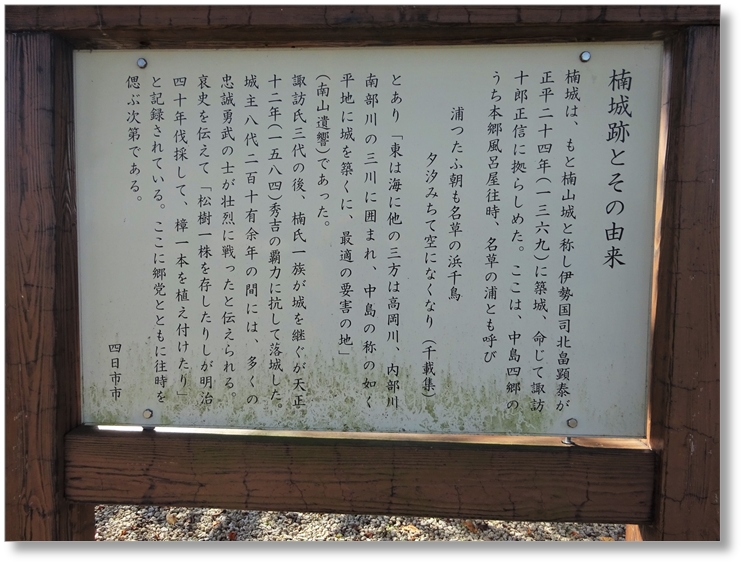 楠城跡とその由来
楠城は、もと楠山城と称し伊勢国司北畠顕泰が
正平二十四年(一三六九)に築城、命じて諏訪
十郎正信に拠らしめた。ここは、中島四郷の
うち本郷風呂屋往時、名草の浦とも呼び
浦つたふ朝も名草の浜千鳥
夕汐みちて空になくなり(千載集)
とあり「東は海に他の三方は高岡川、内部川
南部川の三川に囲まれ、中島の称の如く
平地に城を築くに、最適の要害の地」
(南山遺響)であった。
諏訪氏三代の後、楠氏一族が城を継ぐが天正
十二年(一五八四)秀吉の覇力に抗して落城した。
城主八代二百十有余年の間には、多くの
忠誠勇武の士が壮烈に戦ったと伝えられる。
哀史を伝えて「松樹一株を存したりしが明治
四十年伐採して、樟一本を植え付けたり」
と記録されている。ここに郷党とともに往時を
偲ぶ次第である。
四日市市